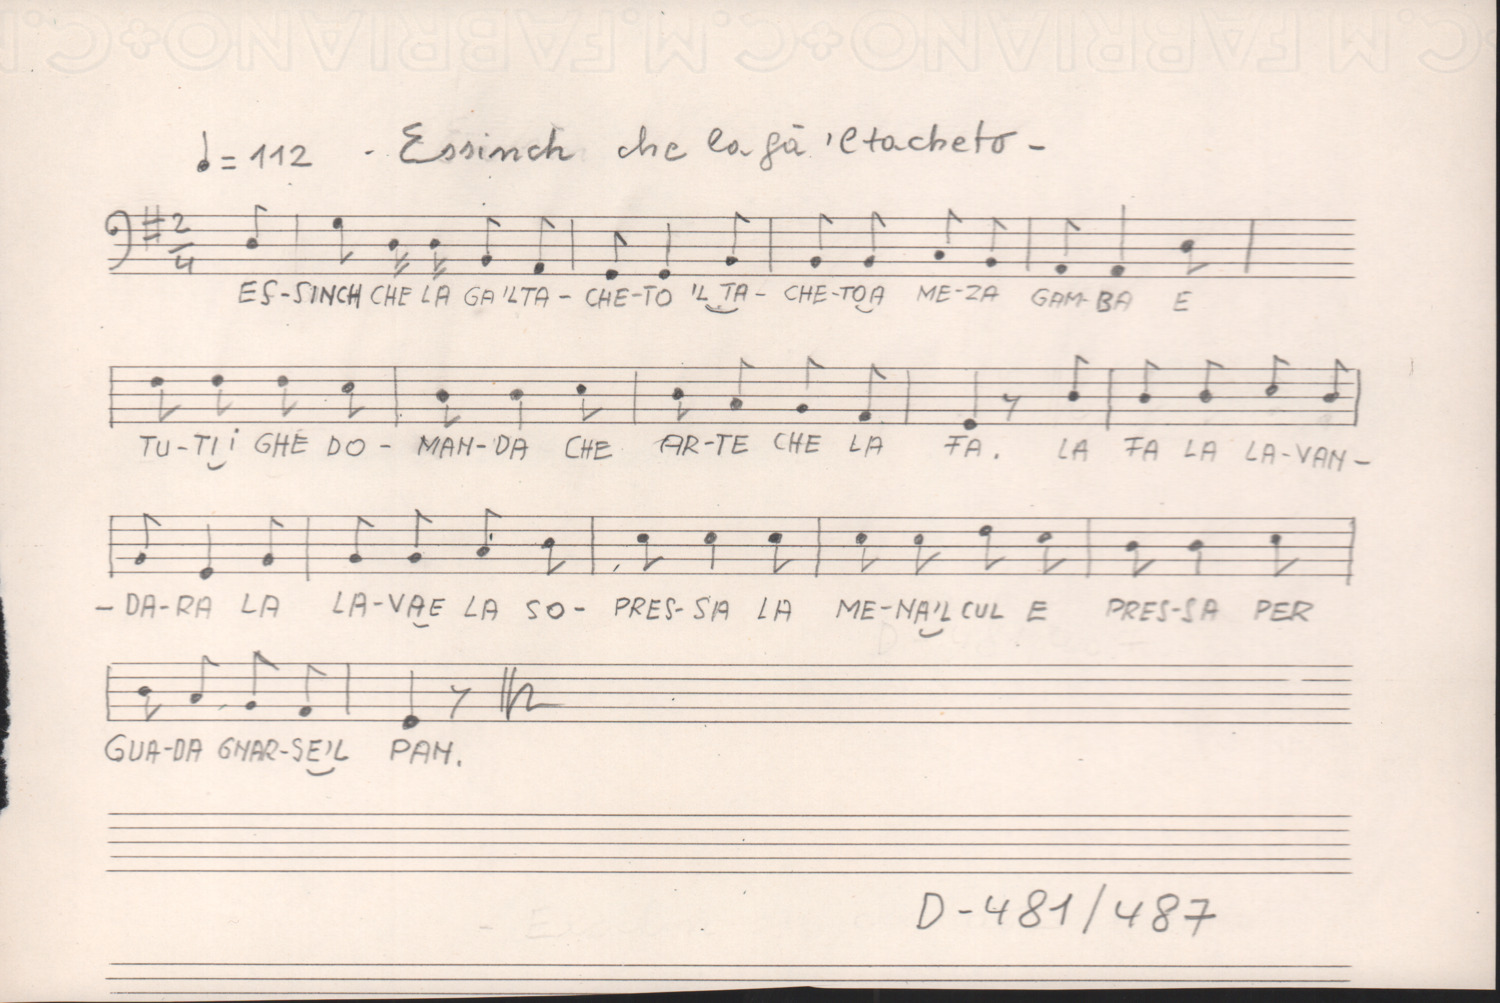 C.M. FABRIANO C.M. FABRIANO C.
= 112 - Essinch che la gà 'l tacheto -
2
4
ES-SINCH CHE LA GA'L TA - CHE-TO 'L TA - CHE-TO A ME-ZA GAM-BA E
TU-TI i GHE DO - MAN-DA CHE AR-TE CHE LA FA. LA FA LA LA-VAN -
- DA-RA LA LA-VA E LA SO - PRES-SA LA ME-NA'L CUL E PRES-SA PER
GUA-DA GNAR-SE'L PAN.
D-481/487